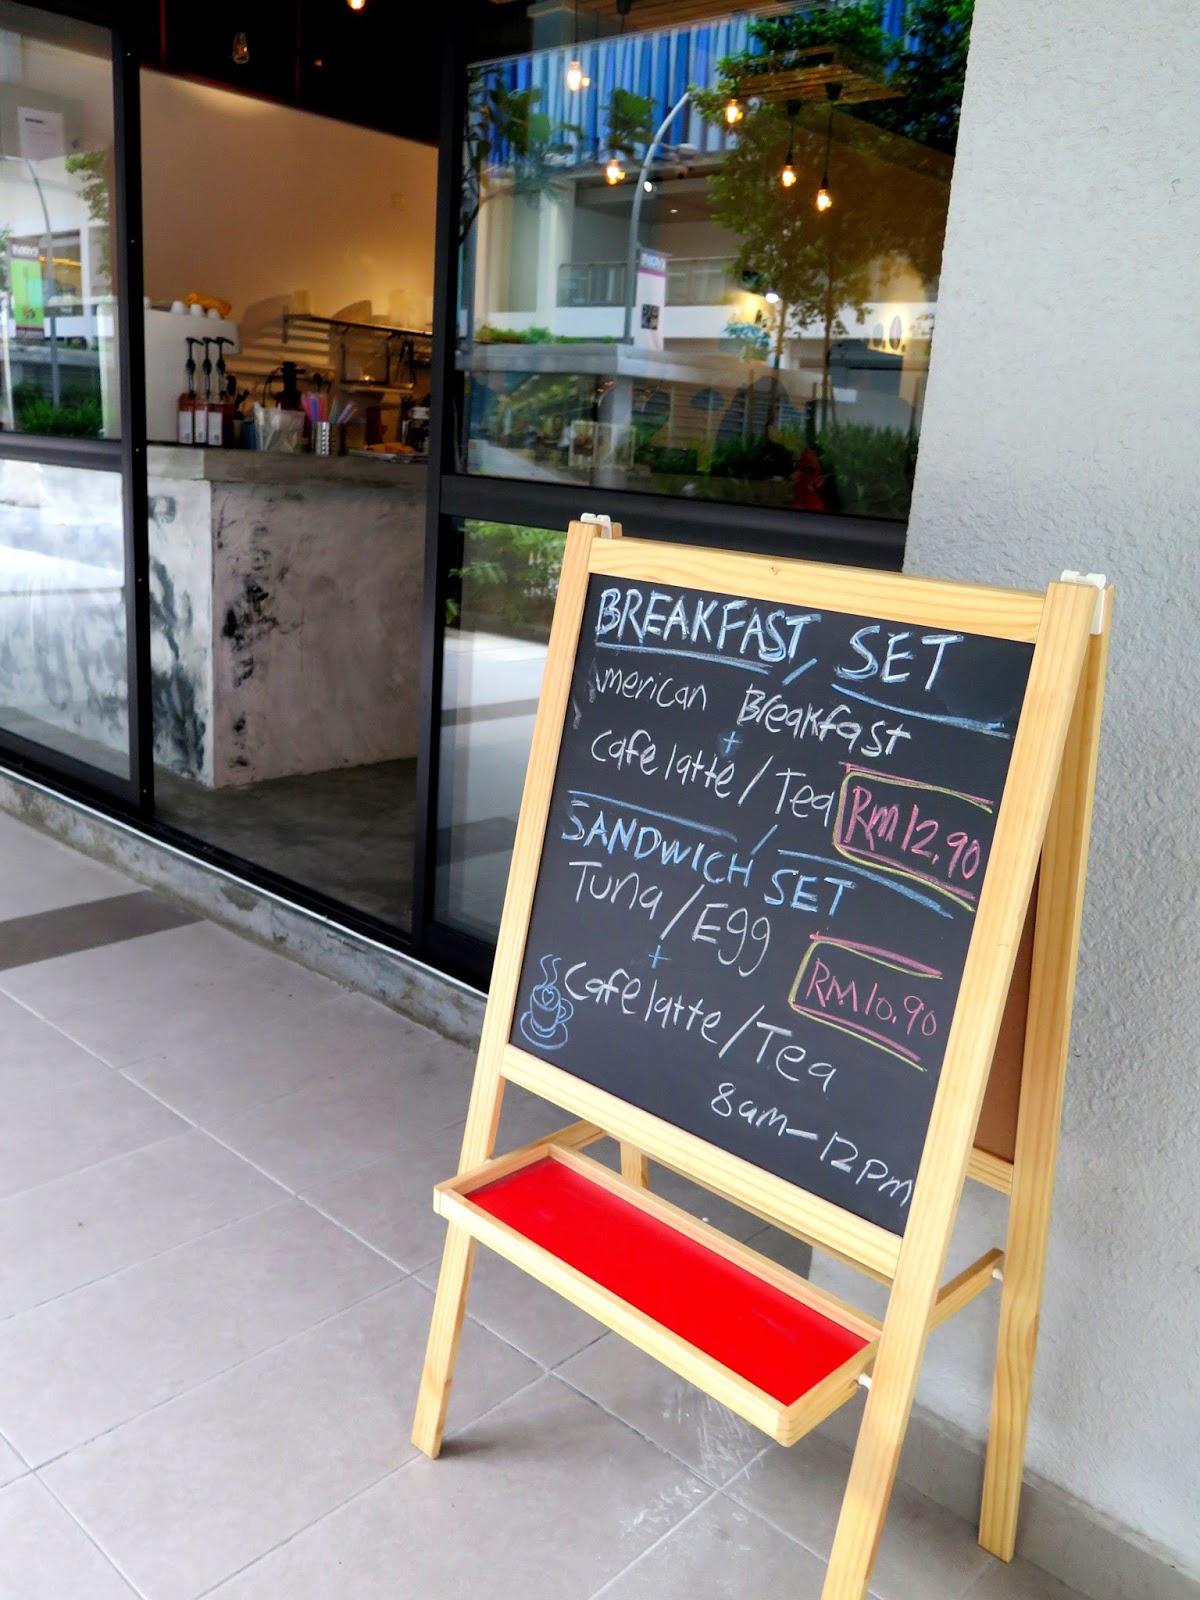 BREAKFAST SET
American Breakfast
+
Cafe latte / Tea
RM12.90
SANDWICH SET
Tuna / Egg
+
RM10.90
Cafe latte / Tea
8am-12pm